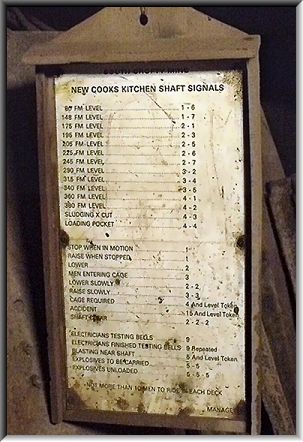 SOUTH CROFTY MINE
NEW COOKS KITCHEN SHAFT SIGNALS
FM LEVEL 1-6
148 FM LEVEL 1-7
175 FM LEVEL 2-1
195 FM LEVEL 2-3
205 FM LEVEL 2-5
225 FM LEVEL
245 FM LEVEL 2-6
260 FM LEVEL 2-7
290 FM LEVEL 3-2
315 FM LEVEL 3-4
340 FM LEVEL 3-5
360 FM LEVEL 4-1
380 FM LEVEL 4-2
SLUDGING X CUT 4-3
LOADING POCKET 4-4
STOP WHEN IN MOTION 1
RAISE WHEN STOPPED 1
LOWER 2
MEN ENTERING CAGE 3
LOWER SLOWLY 2-2
RAISE SLOWLY 3-3
CAGE REQUIRED 4 And Level Token
ACCIDENT 15 And Level Token
SHAFT CLEAR 2-2-2
ELECTRICIANS TESTING BELLS 9
ELECTRICIANS FINISHED TESTING BELLS 9 Repeated
BLASTING NEAR SHAFT 5 And Level Token
EXPLOSIVES TO BE CARRIED 5-5
EXPLOSIVES UNLOADED 5-5-5
NOT MORE THAN 10 MEN TO RIDE IN EACH DECK
MANAGER